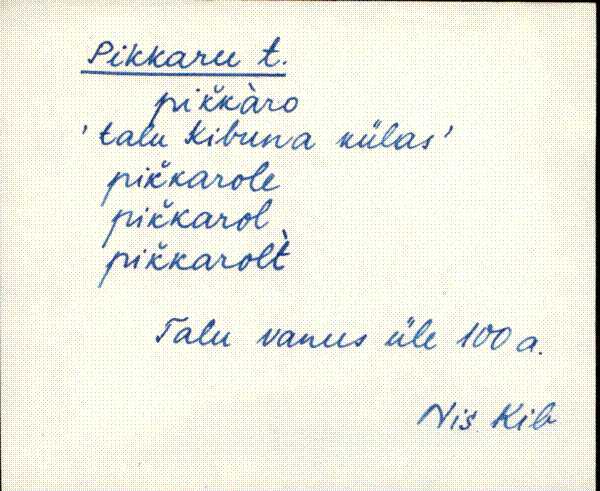 Pikkaru t.
pik̆kàro
'talu Kibuna külas'
pik̆karole
pik̆karol
pik̆karolt̀
Talu vanus üle 100 a.
Nis Kib